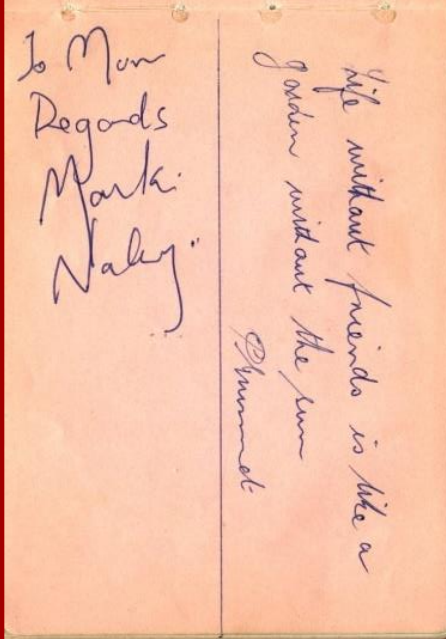 To Mum
Regards
Life without friends is like a
garden without the sun